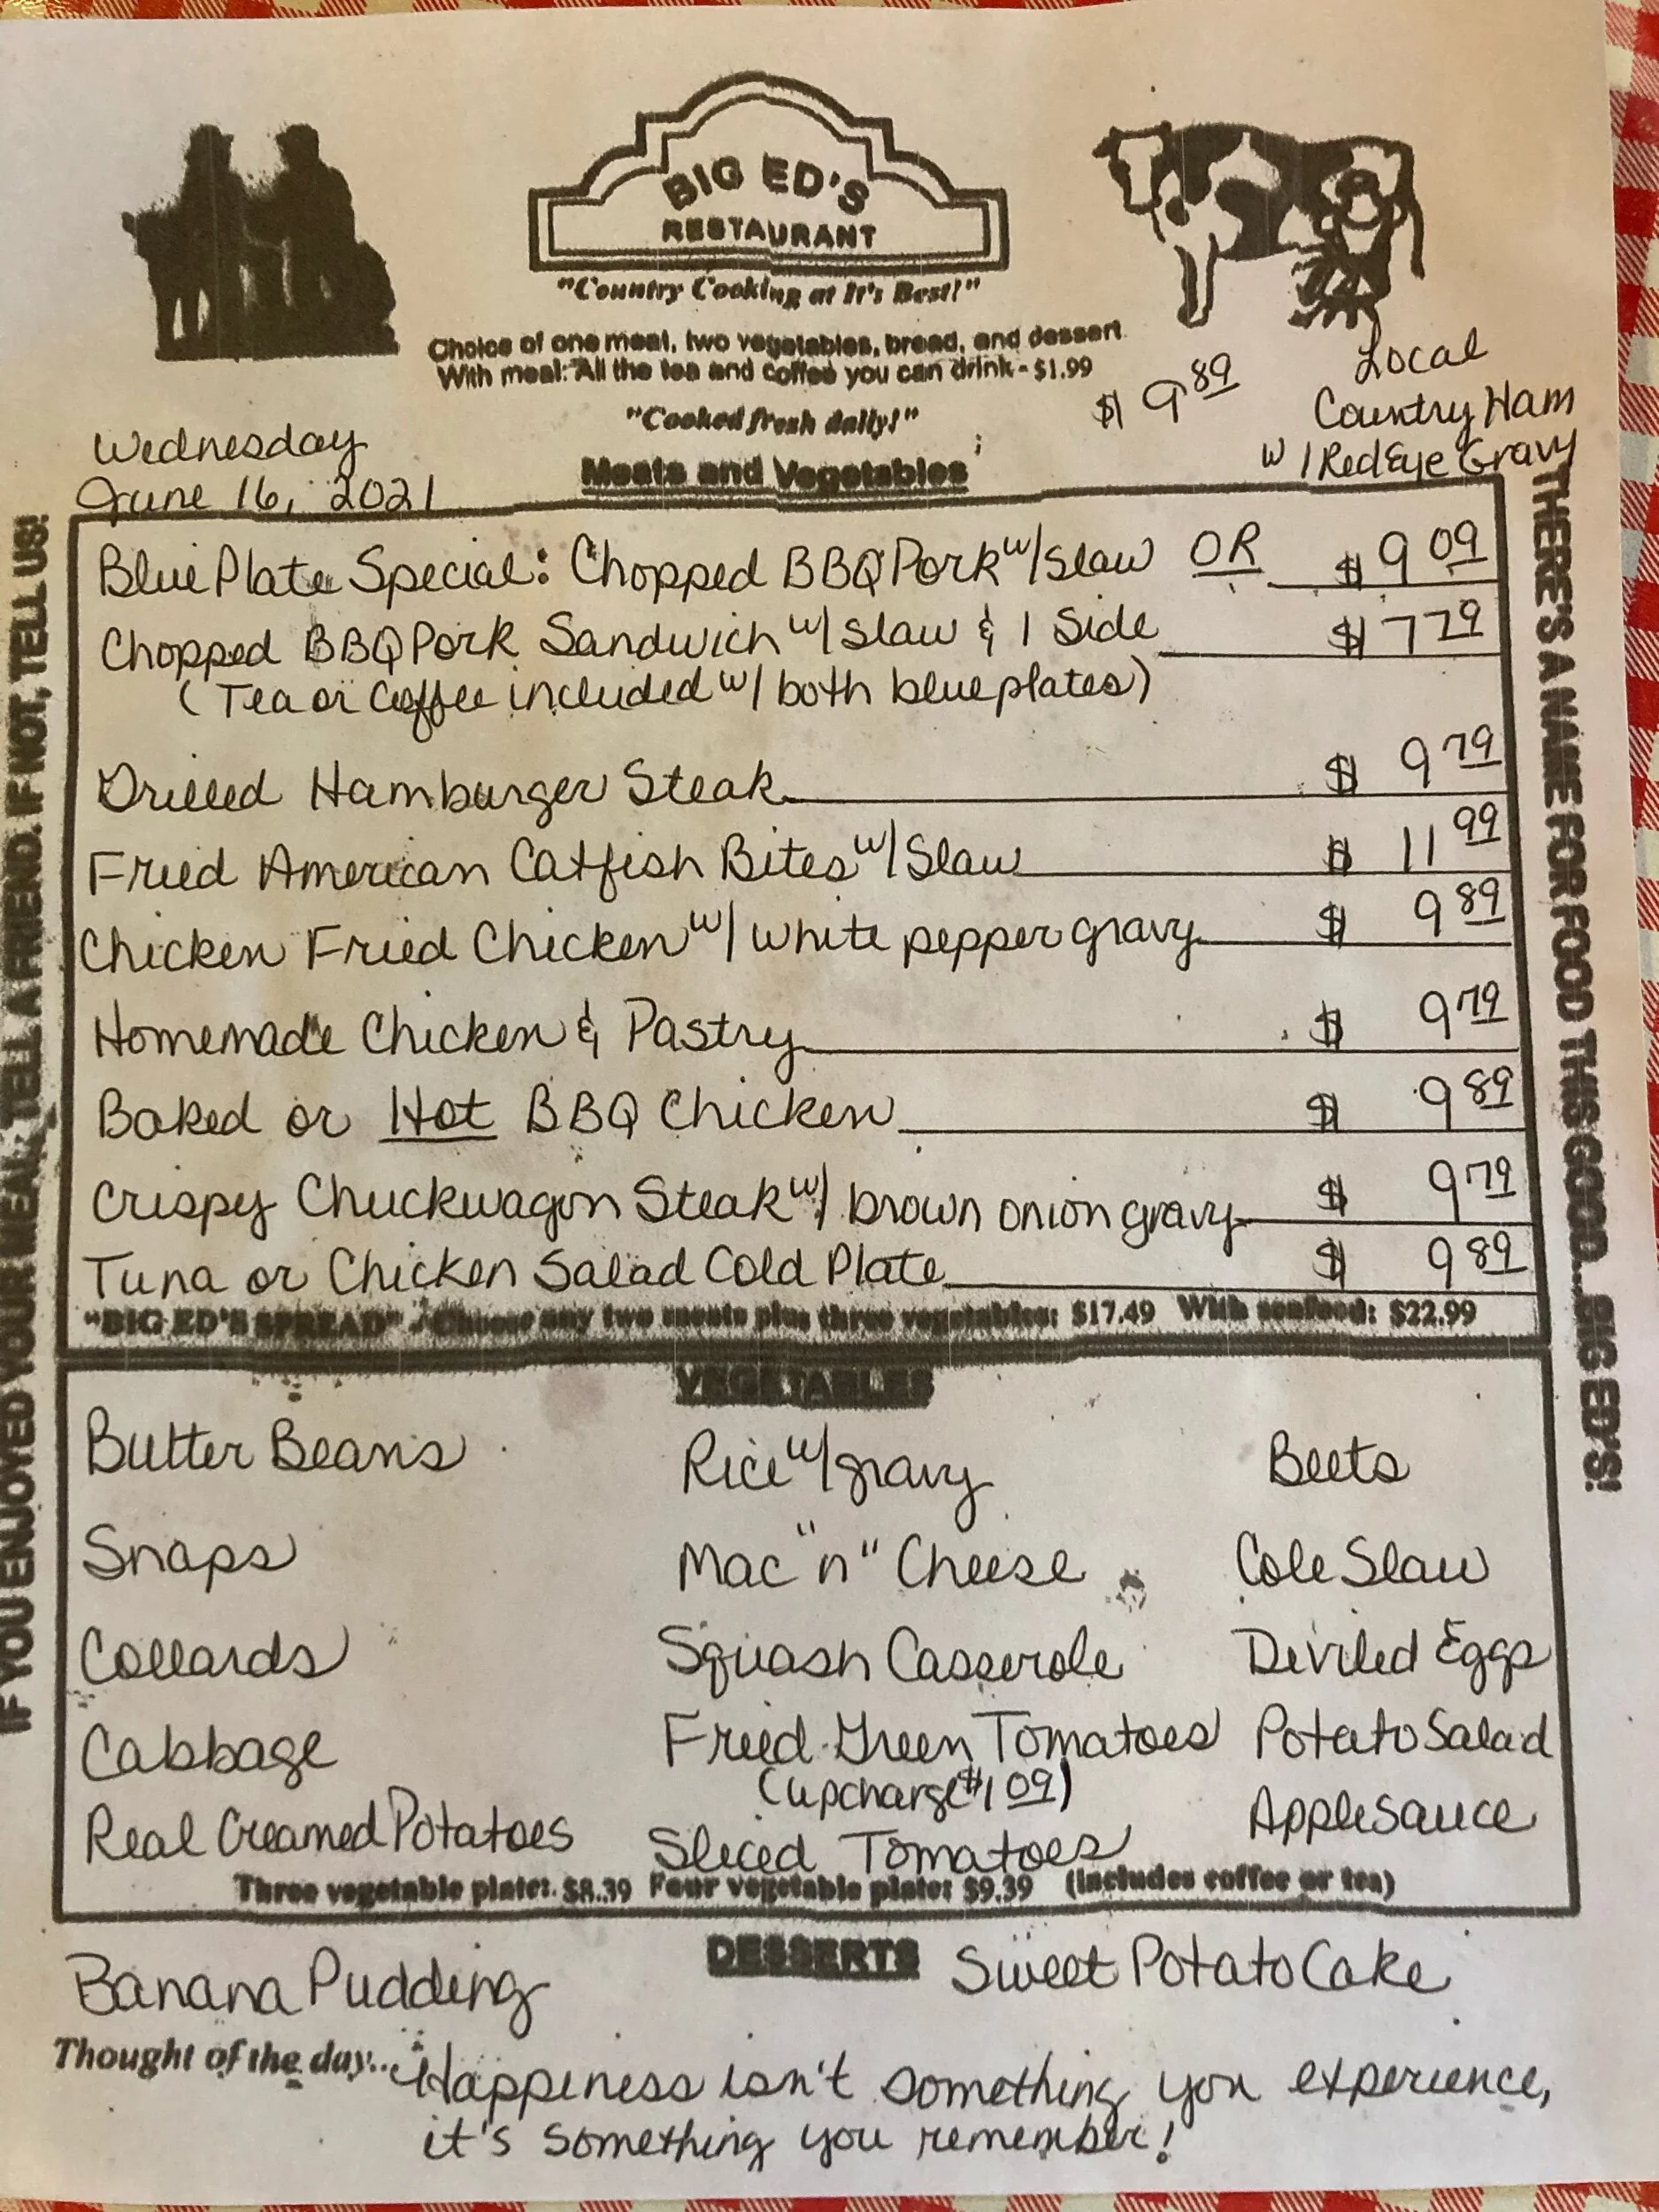 BIG ED'S
RESTAURANT
"Country Cooking at It's Best!"
Choice of one meat, two vegetables, bread, and dessert
With meal: All the tea and coffee you can drink - $1.99
"Cooked fresh daily!"
$ 9 89
Local
Country Ham
w/ Red Eye Gravy
Wednesday
June 16, 2021
Meats and Vegetables
Blue Plate Special: Chopped BBQ Pork w/ Slaw OR $ 9 09
Chopped BBQ Pork Sandwich w/ slaw & 1 Side $ 7 79
(Tea or Coffee included w/ both blue plates)
Grilled Hamburger Steak $ 9 79
Fried American Catfish Bites w/ Slaw $ 11 99
Chicken Fried Chicken w/ white pepper gravy $ 9 89
Homemade Chicken & Pastry $ 9 79
Baked or Hot BBQ Chicken $ 9 89
Crispy Chuckwagon Steak w/ brown onion gravy $ 9 79
Tuna or Chicken Salad Cold Plate $ 9 89
"BIG ED'S SPREAD" - Choose any two meats plus three vegetables: $17.49 With seafood: $22.99
VEGETABLES
Butter Beans Rice w/ gravy Beets
Snaps Mac "n" Cheese Cole Slaw
Collards Squash Casserole Deviled Eggs
Cabbage Fried Green Tomatoes Potato Salad
(upcharge $1 09)
Real Creamed Potatoes Sliced Tomatoes Applesauce
Three vegetable plate: $8.39 Four vegetable plate: $9.39 (includes coffee or tea)
DESSERTS
Banana Pudding Sweet Potato Cake
Thought of the day... Happiness isn't something you experience,
it's something you remember!
IF YOU ENJOYED YOUR MEAL, TELL A FRIEND. IF NOT, TELL US!
THERE'S A NAME FOR FOOD THIS GOOD...BIG ED'S!